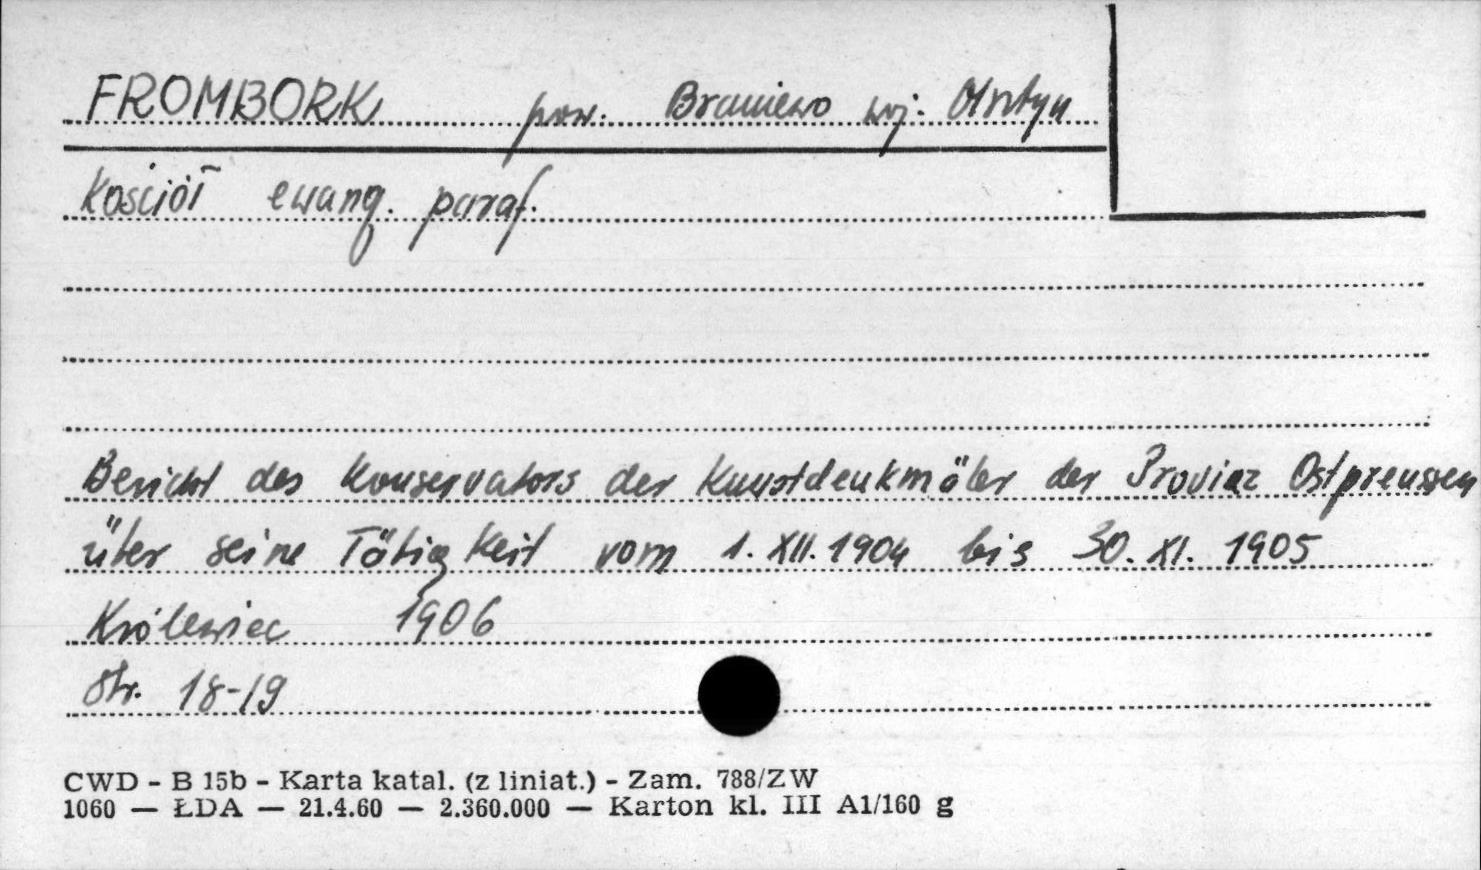 FROMBORK pow. Braniewo woj. Olsztyn
Kościół ewang. paraf.
Bericht des Konservators der Kunstdenkmäler der Provinz Ostpreussen
über seine Tätigkeit vom 1. XII. 1904 bis 30. XI. 1905
Królewiec 1906
Str. 18-19
CWD - B 15b - Karta katal. (z liniat.) - Zam. 788/ZW
1060 — ŁDA — 21.4.60 — 2.360.000 — Karton kl. III A1/160 g